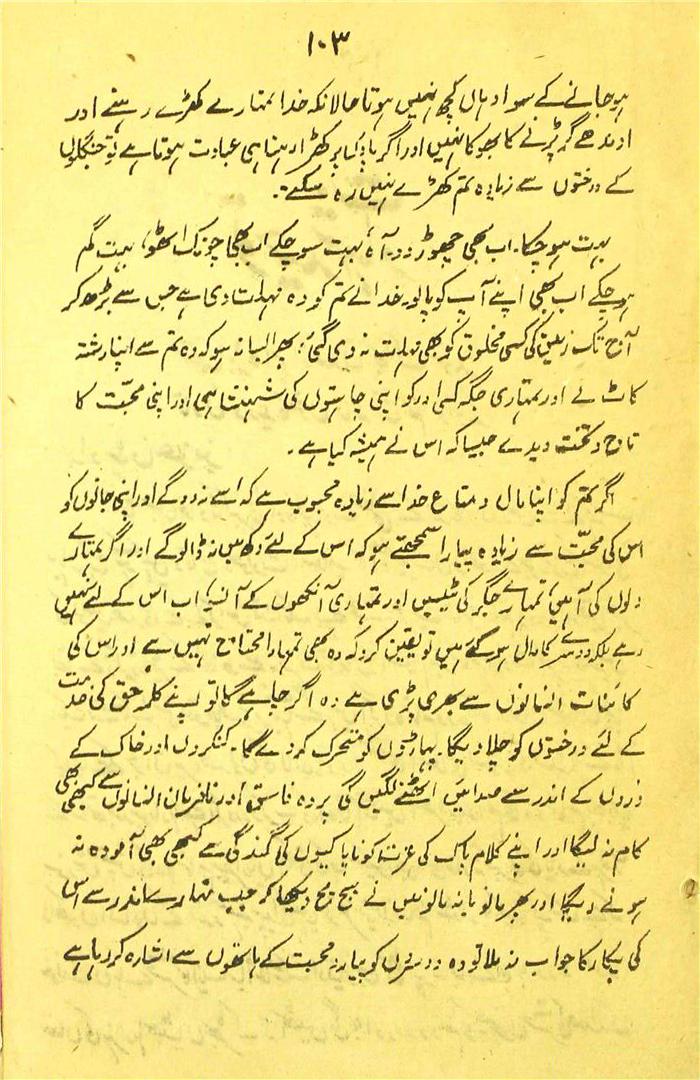 ۱۰۳
ہو جانے کے سوا وہاں کچھ نہیں ہوتا حالانکہ خدا تمہارے کھڑے رہنے اور
اوندھے گر پڑنے کا بھوکا نہیں اور اگر پاؤں پر کھڑا رہنا ہی عبادت ہوتا ہے تو جنگلوں
کے درختوں سے زیادہ تم کھڑے نہیں رہ سکتے۔
بہت ہو چکا۔ اب بھی چھوڑ دو۔ آہ بہت سو چکے اب بھی چونک اٹھو، بہت گم
ہو چکے اب بھی اپنے آپ کو پالو۔ خدا نے تم کو وہ مہلت دی ہے جس سے بڑھ کر
آج تک زمین کی کسی مخلوق کو بھی مہلت نہ دی گئی، پھر ایسا نہ ہو کہ وہ تم سے اپنا رشتہ
کاٹ لے اور تمہاری جگہ کسی اور کو اپنی چاہتوں کی شہنشاہی اور اپنی محبت کا
تاج و تخت دیدے جیسا کہ اس نے ہمیشہ کیا ہے۔
اگر تم کو اپنا مال و متاع خدا سے زیادہ محبوب ہے کہ اسے نہ دو گے اور اپنی جانوں کو
اس کی محبت سے زیادہ پیارا سمجھتے ہو کہ اس کے لئے دکھ میں نہ ڈالو گے اور اگر تمہارے
دلوں کی آہیں، تمہارے جگر کی ٹیسیں اور تمہاری آنکھوں کے آنسو، اب اس کے لئے نہیں
رہے بلکہ دوسرے کا مال ہو گئے ہیں تو یقین کرو کہ وہ بھی تمہارا محتاج نہیں ہے اور اس کی
کائنات انسانوں سے بھری پڑی ہے وہ اگر چاہے گا تو اپنے کلمہ حق کی خدمت
کے لئے درختوں کو چلا دیگا۔ پہاڑوں کو متحرک کر دے گا۔ کنکروں اور خاک کے
ذروں کے اندر سے صدائیں اٹھنے لگیں گی پر وہ فاسق اور نافرمان انسانوں سے کبھی بھی
کام نہ لیگا اور اپنے کلام پاک کی عزت کو ناپاکیوں کی گندگی سے کبھی بھی آلودہ نہ
ہونے دیگا اور پھر مانو یا نہ مانو میں نے سچ مچ دیکھا کہ جب تمہارے اندر سے اس
کی پکار کا جواب نہ ملا تو وہ دوسروں کو پیار و محبت کے ہاتھوں سے اشارہ کر رہا ہے